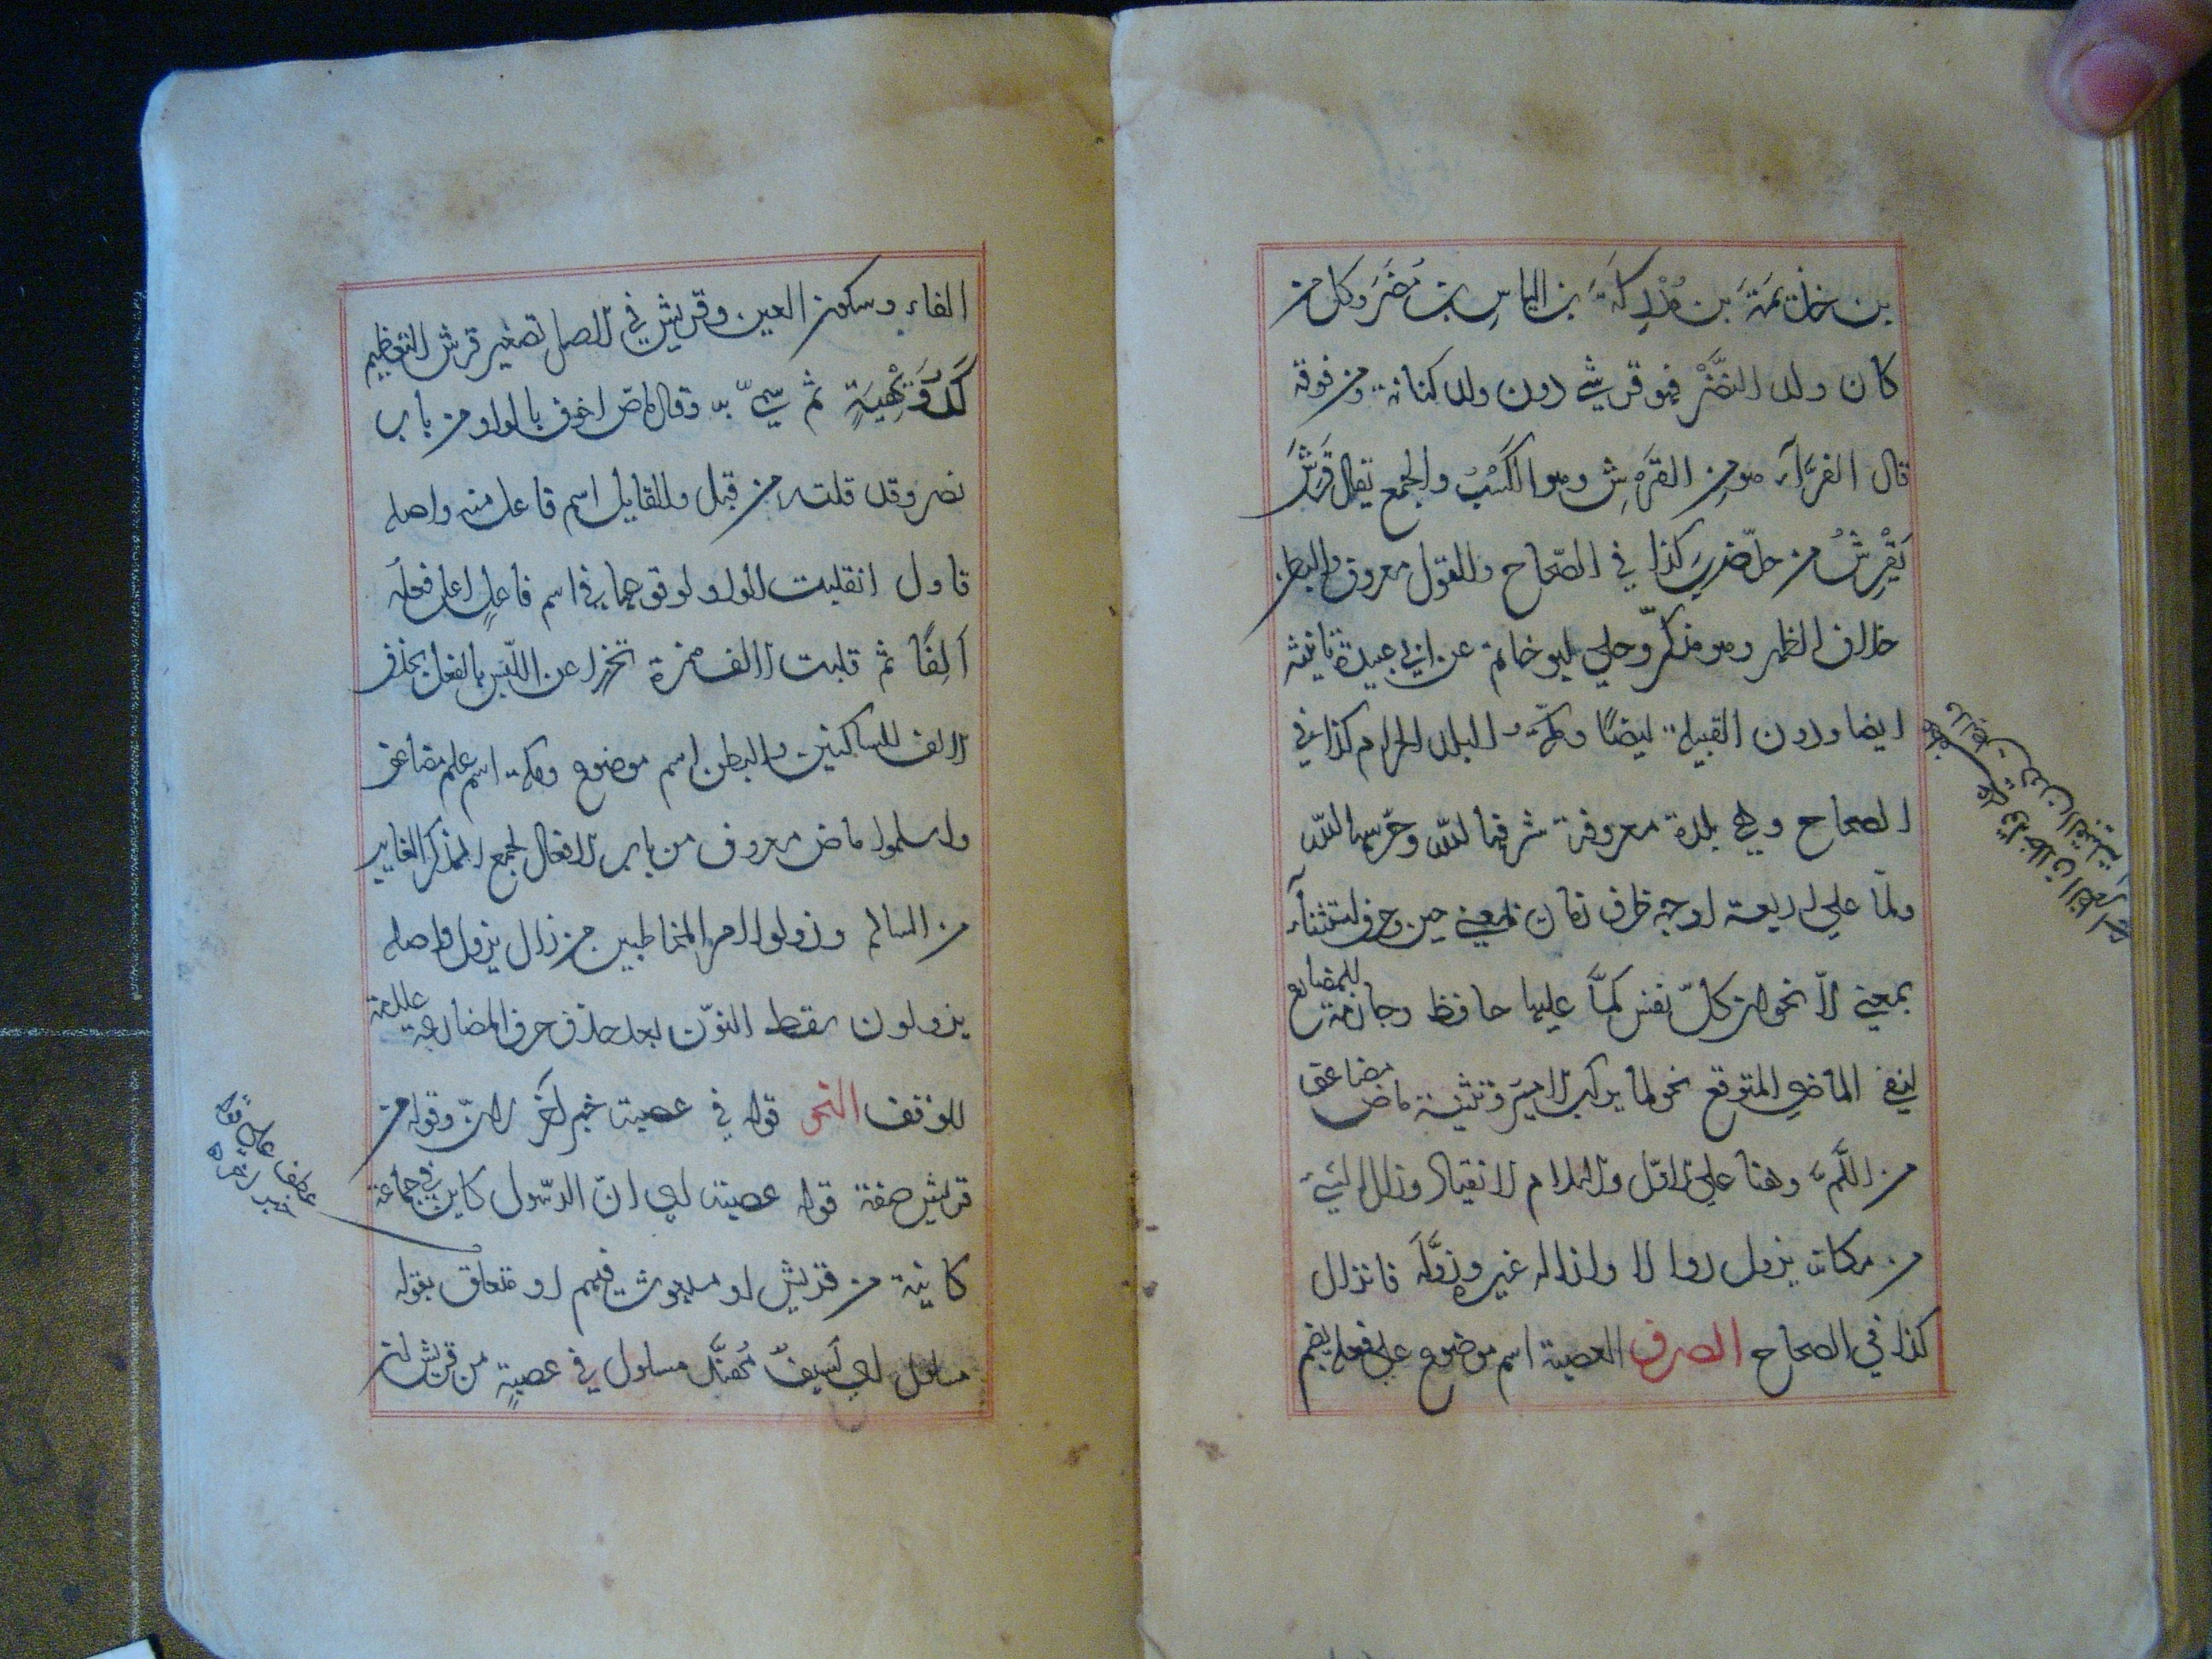 بن خزيمة بن مُدْرِكَةَ بن الياسِ بن مُضَرَ وكل من
كان ولد النَّضْرِ فهو قرشي دون ولد كنانة ومن فوقه
قال الفرّاء هو من القَرْشِ وهو الكَسْبُ والجمع يقال قَرَشَ
يَقْرِشُ من حدّ ضرب كذا في الصّحاح والقول معروف والبطن
خلاف الظهر وهو مذكّر وحكي ابو حاتم عن ابي عبيدة تانيثه
ايضا ودون القبيلة ايضًا ومكّة البلد الحرام كذا في
الصحاح وهي بلدة معروفة شرفها اللّه وحرّسها اللّه
ولمّا علي اربعة اوجه ظرف زمان بمعني حين وحرف استثناء
بمعني الاّ نحو ان كلّ نفس لمّا عليها حافظ وجازمة للمضارع
لنفي الماضي المتوقع نحو لما يركب الامير وتثنية ماض مضاعف
من اللَّمِّ وهنا علي الاوّل والاسلام الانقياد وزال الشيء
من مكانه يزول زوالا وازاله غيره وزوَّلَه فانزال
كذا في الصحاح الصرف العصبة اسم موضوع علي فعلة بضم
الفاء وسكون العين وقريش في الاصل تصغير قرش للتعظيم
كَدُوَيْهِيَةٍ ثم سمّي به وقال ماض اجوف بالواو من باب
نصر وقد قلت من قبل والقايل اسم فاعل منه واصله
قاول انقلبت الواو لوقوعها في اسم فاعلٍ اعل فعله
اَلِفًا ثم قلبت الالف همزة تحرزا عن اللّبس بالفعل بحذف
الالف للساكنين والبطن اسم موضوع ومكة اسم علم مضاعف
واسلموا ماض معروف من باب الافعال لجمع المذكر الغايب
من السالم وزولوا امر المخاطبين من زال يزول واصله
يزولون سقط النوّن بعد حذف حرف المضارعة علامة
للوقف النحو قوله في عصبة خبر آخر لانّ وقوله من
قريش صفة قوله عصبة اي انّ الرسول كاين في جماعة
كاينة من قريش او مبعوث فيهم او متعلق بقوله
مسلول اي لسيفٌ مُهنَّد مسلول في عصبةٍ من قريش لان
عطف علي قوله